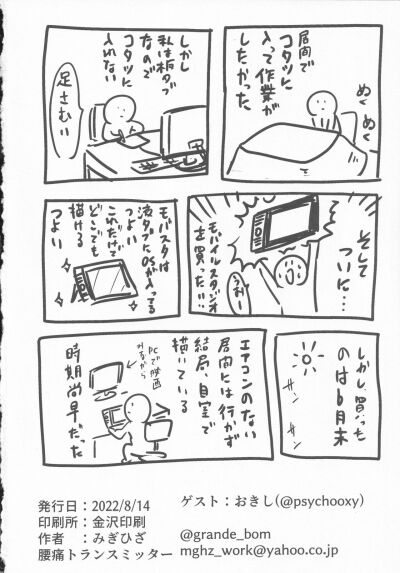 居間で
コタツに
入って作業が
したかった
ぬく
ぬく
しかし
私は板タブ
なので
コタツに
入れない
足さむい
そして
ついに…
モバイルスタジオ
を買った!!
モバスタは
液タブにOSが入ってる
つよい
これだけで
どこでも
描ける
つよい
しかし買った
のは6月末
サン
サン
エアコンのない
居間には行かず
結局、自室で
描いている
PCで映画
みながら
時期尚早だった
発行日：2022/8/14
印刷所：金沢印刷
作者：みぎひざ
腰痛トランスミッター
ゲスト：おきし(@psychooxy)
@grande_bom
mghz_work@yahoo.co.jp